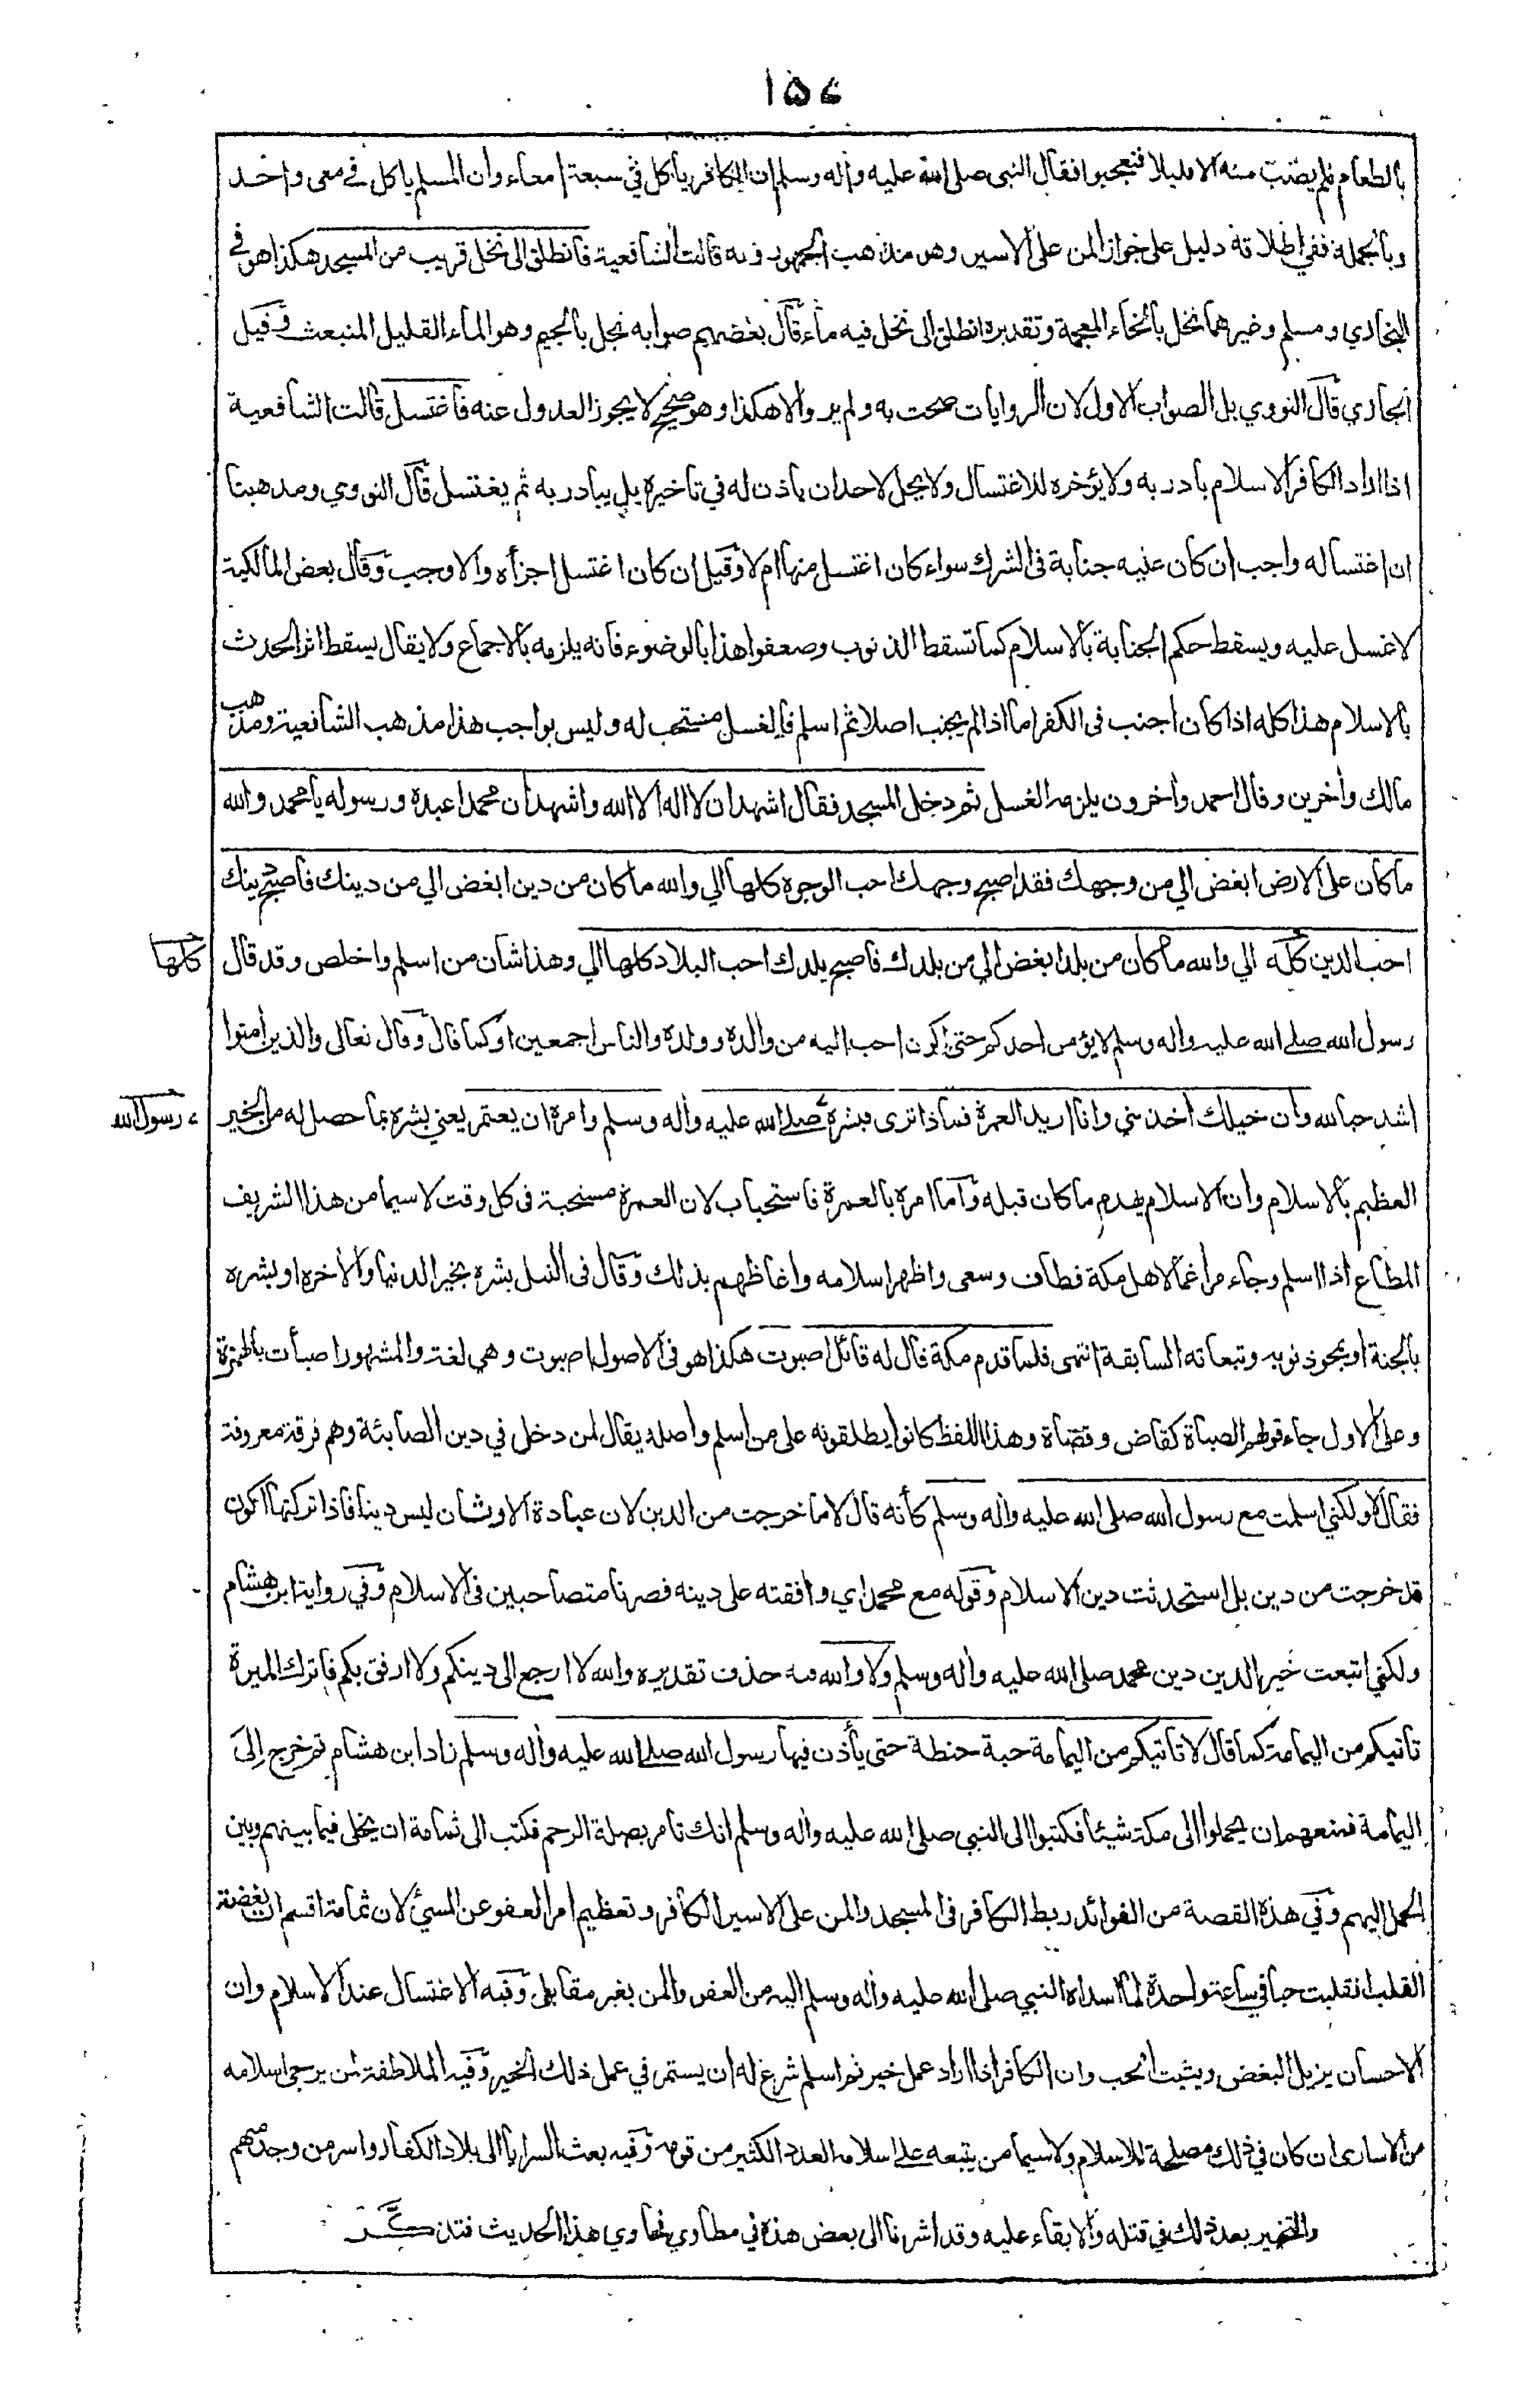 ١٥٤
بالطعام فلم يصب منه الا قليلا فتعجبوا فقال النبي صلى الله عليه واله وسلم ان الكافر ياكل في سبعة امعاء وان المسلم ياكل في معى واحد
وبالجملة ففي اطلاقه دليل على جواز المن على الاسير وهو مذهب الجمهور وبه قالت الشافعية فانطلق الى نخل قريب من المسجد هكذا هو في
البخاري ومسلم وغيرهما نخل بالخاء المعجمة وتقديره انطلق الى نخل فيه ماء وقال بعضهم صوابه نجل بالجيم وهو الماء القليل المنبعث وقيل
الجاري قال النووي بل الصواب الاول لان الروايات صحت به ولم يرو الا هكذا وهو صحيح لا يجوز العدول عنه فاغتسل قالت الشافعية
اذا اراد الكافر الاسلام بادر به ولا يؤخره للاغتسال ولا يحل لاحد ان ياذن له في تاخيره بل يبادر به ثم يغتسل قال النووي ومذهبنا
ان اغتساله واجب ان كان عليه جنابة فى الشرك سواء كان اغتسل منها ام لا وقيل ان كان اغتسل اجزأه والا وجب وقال بعض المالكية
لا غسل عليه ويسقط حكم الجنابة بالاسلام كما تسقط الذنوب وضعفوا هذا بالوضوء فانه يلزمه بالاجماع ولا يقال يسقط اثر الحدث
بالاسلام هذا كله اذا كان اجنب فى الكفر اما اذا لم يجنب اصلا ثم اسلم فالغسل مستحب له وليس بواجب هذا مذهب الشافعية ومذهب
مالك وأخرين وقال احمد وأخرون يلزمه الغسل ثم دخل المسجد فقال اشهد ان لا اله الا الله واشهد ان محمدا عبده ورسوله يا محمد والله
ما كان على الارض ابغض الي من وجهك فقد اصبح وجهك احب الوجوه كلها الي والله ما كان من دين ابغض الي من دينك فاصبح دينك
احب الدين كله الي والله ما كان من بلد ابغض الي من بلدك فاصبح بلدك احب البلاد كلها الي وهذا شان من اسلم واخلص وقد قال
كلها
رسول الله صلى الله عليه واله وسلم لا يؤمن احدكم حتى اكون احب اليه من والده وولده والناس اجمعين او كما قال وقال تعالى والذين أمنوا
اشد حبا لله وان خيلك اخذتني وانا اريد العمرة فماذا ترى فبشره صلى الله عليه وأله وسلم وامره ان يعتمر يعني بشره بما حصل له من الخير
رسول الله
العظيم بالاسلام وان الاسلام يهدم ما كان قبله وأما امره بالعمرة فاستحباب لان العمرة مستحبة فى كل وقت لا سيما من هذا الشريف
المطاع اذا اسلم وجاء مراغما لاهل مكة فطاف وسعى واظهر اسلامه واغاظهم بذلك وقال فى النيل بشره بخير الدنيا والأخرة او بشره
بالجنة او بمحو ذنوبه وتبعاته السابقة انتهى فلما قدم مكة قال له قائل اصبوت هكذا هو فى الاصول اصبوت وهي لغة والمشهور اصبأت بالهمزة
وعلى الاول جاء قولهم الصباة كقاض وقضاة وهذا اللفظ كانوا يطلقونه على من اسلم واصله يقال لمن دخل في دين الصابئة وهم فرقة معروفة
فقال لا ولكني اسلمت مع رسول الله صلى الله عليه وأله وسلم كأنه قال لا ما خرجت من الدين لان عبادة الاوثان ليس دينا فاذا تركتها اكون
قد خرجت من دين بل استحدثت دين الاسلام وقوله مع محمد اي وافقته على دينه فصرنا متصاحبين فى الاسلام وفي رواية ابن هشام
ولكني اتبعت خير الدين دين محمد صلى الله عليه وأله وسلم ولا والله فيه حذف تقديره والله لا ارجع الى دينكم ولا ارفق بكم فاترك الميرة
تاتيكم من اليمامة كما قال لا تاتيكم من اليمامة حبة حنطة حتى يأذن فيها رسول الله صلى الله عليه وأله وسلم زاد ابن هشام ثم خرج إلى
اليمامة فمنعهم ان يحملوا الى مكة شيئا فكتبوا الى النبي صلى الله عليه وأله وسلم انك تامر بصلة الرحم فكتب الى ثمامة ان يخلى فيما بينهم وبين
الحمل اليهم وفي هذه القصة من الفوائد ربط الكافر فى المسجد والمن على الاسير الكافر وتعظيم امر العفو عن المسئ لان ثمامة اقسم ان بغضة
القلب انقلبت حبا في ساعة واحدة لما اسداه النبي صلى الله عليه وأله وسلم اليه من العفو والمن بغير مقابل وفيه الاغتسال عند الاسلام وان
الاحسان يزيل البغض ويثبت الحب وان الكافر اذا اراد عمل خير ثم اسلم شرع له ان يستمر في عمل ذلك الخير وفيه الملاطفة لمن يرجى اسلامه
من الاسارى ان كان في ذلك مصلحة للاسلام ولا سيما من يتبعه على اسلامه العدد الكثير من قومه وفيه بعث السرايا الى بلاد الكفار واسر من وجد منهم
والتخيير بعد ذلك في قتله والابقاء عليه وقد اشرنا الى بعض هذه في مطاوي فحاوي هذا الحديث فتذكر